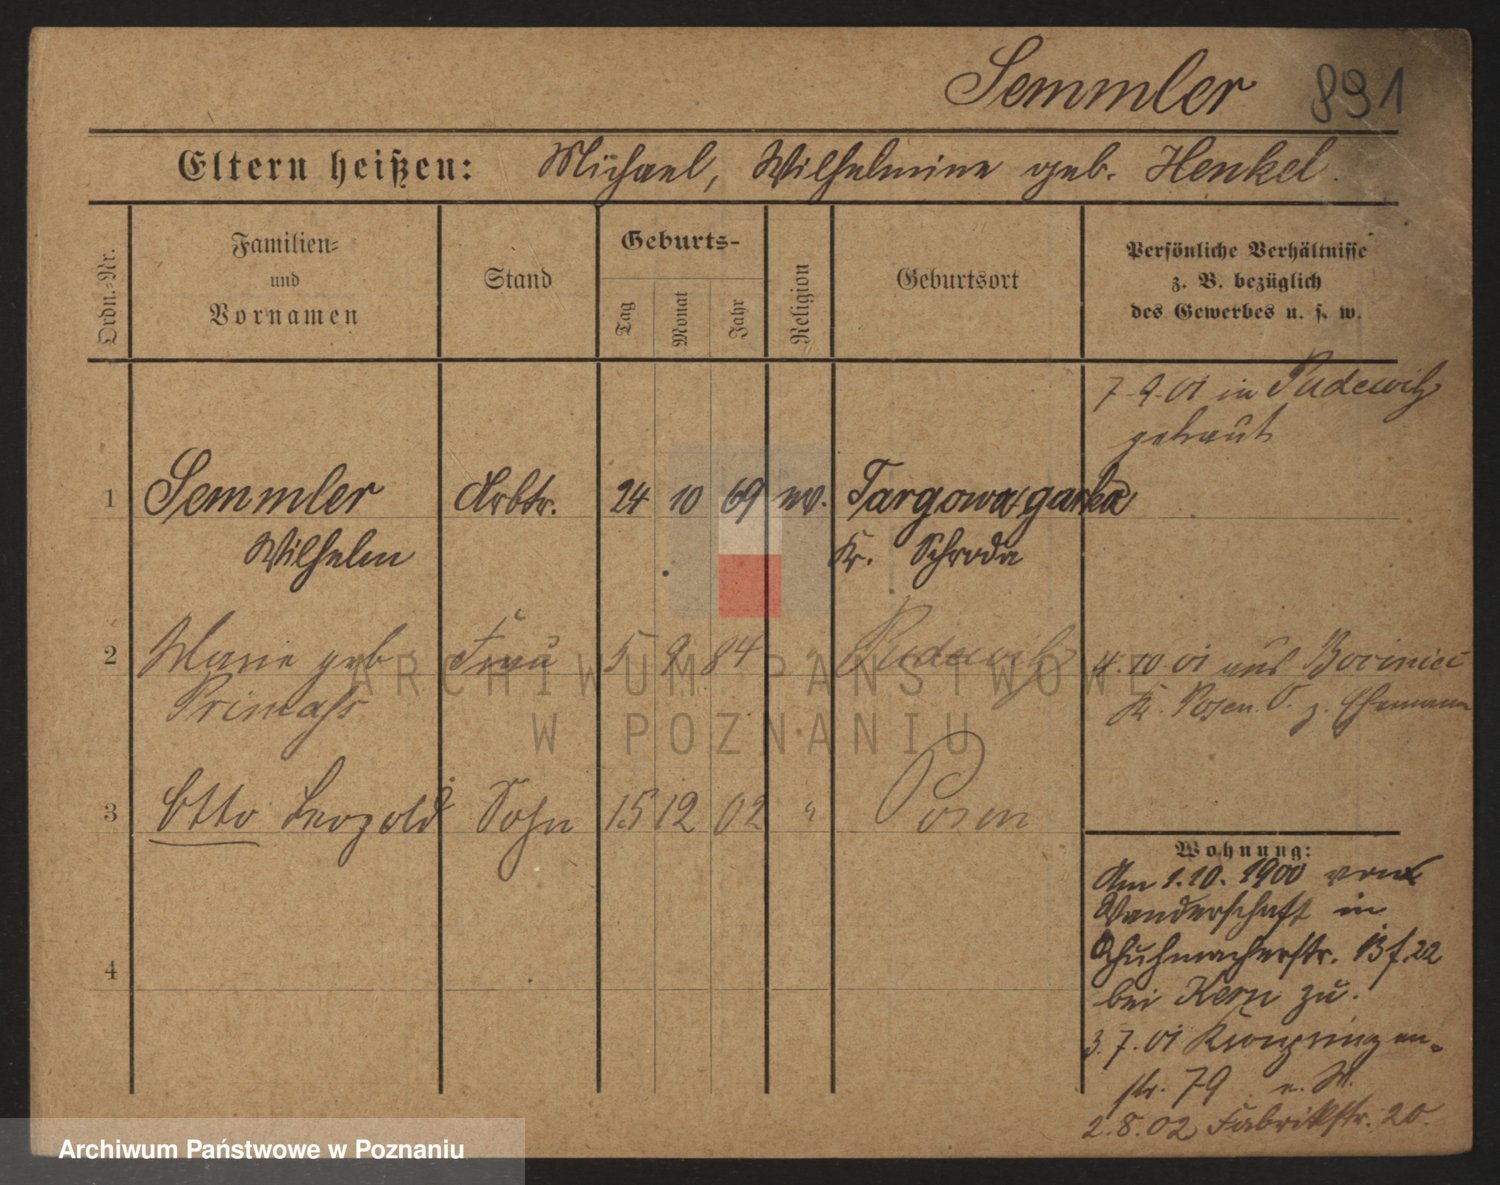 Semmler 891
Eltern heißen: Michael, Wilhelmine geb. Henkel.
Ordn.-Nr.
Familien-
und
Vornamen
Stand
Geburts-
Tag
Monat
Jahr
Religion
Geburtsort
Persönliche Verhältnisse
z. B. bezüglich
des Gewerbes u. s. w.
7.9.01 in Pudewitz
getraut
1 Semmler Arbtr. 24 10 69 ev. Targowagorka
Wilhelm Kr. Schroda
2 Marie geb Frau 5 9 84 " Pudewitz 4.10 01 aus
Primass Kr. Posen O. z. Ehemann
3 Otto Leopold Sohn 15 12 02 " Posen
4
Wohnung:
Am 1.10.1900 von
Wanderschaft in
Schuhmacherstr. 13 f. 22
bei Kern zu.
3.7.01 Kronprinzen-
str. 79
2.8.02 Fabrikstr. 20.
ARCHIWUM PAŃSTWOWE
W POZNANIU
Archiwum Państwowe w Poznaniu